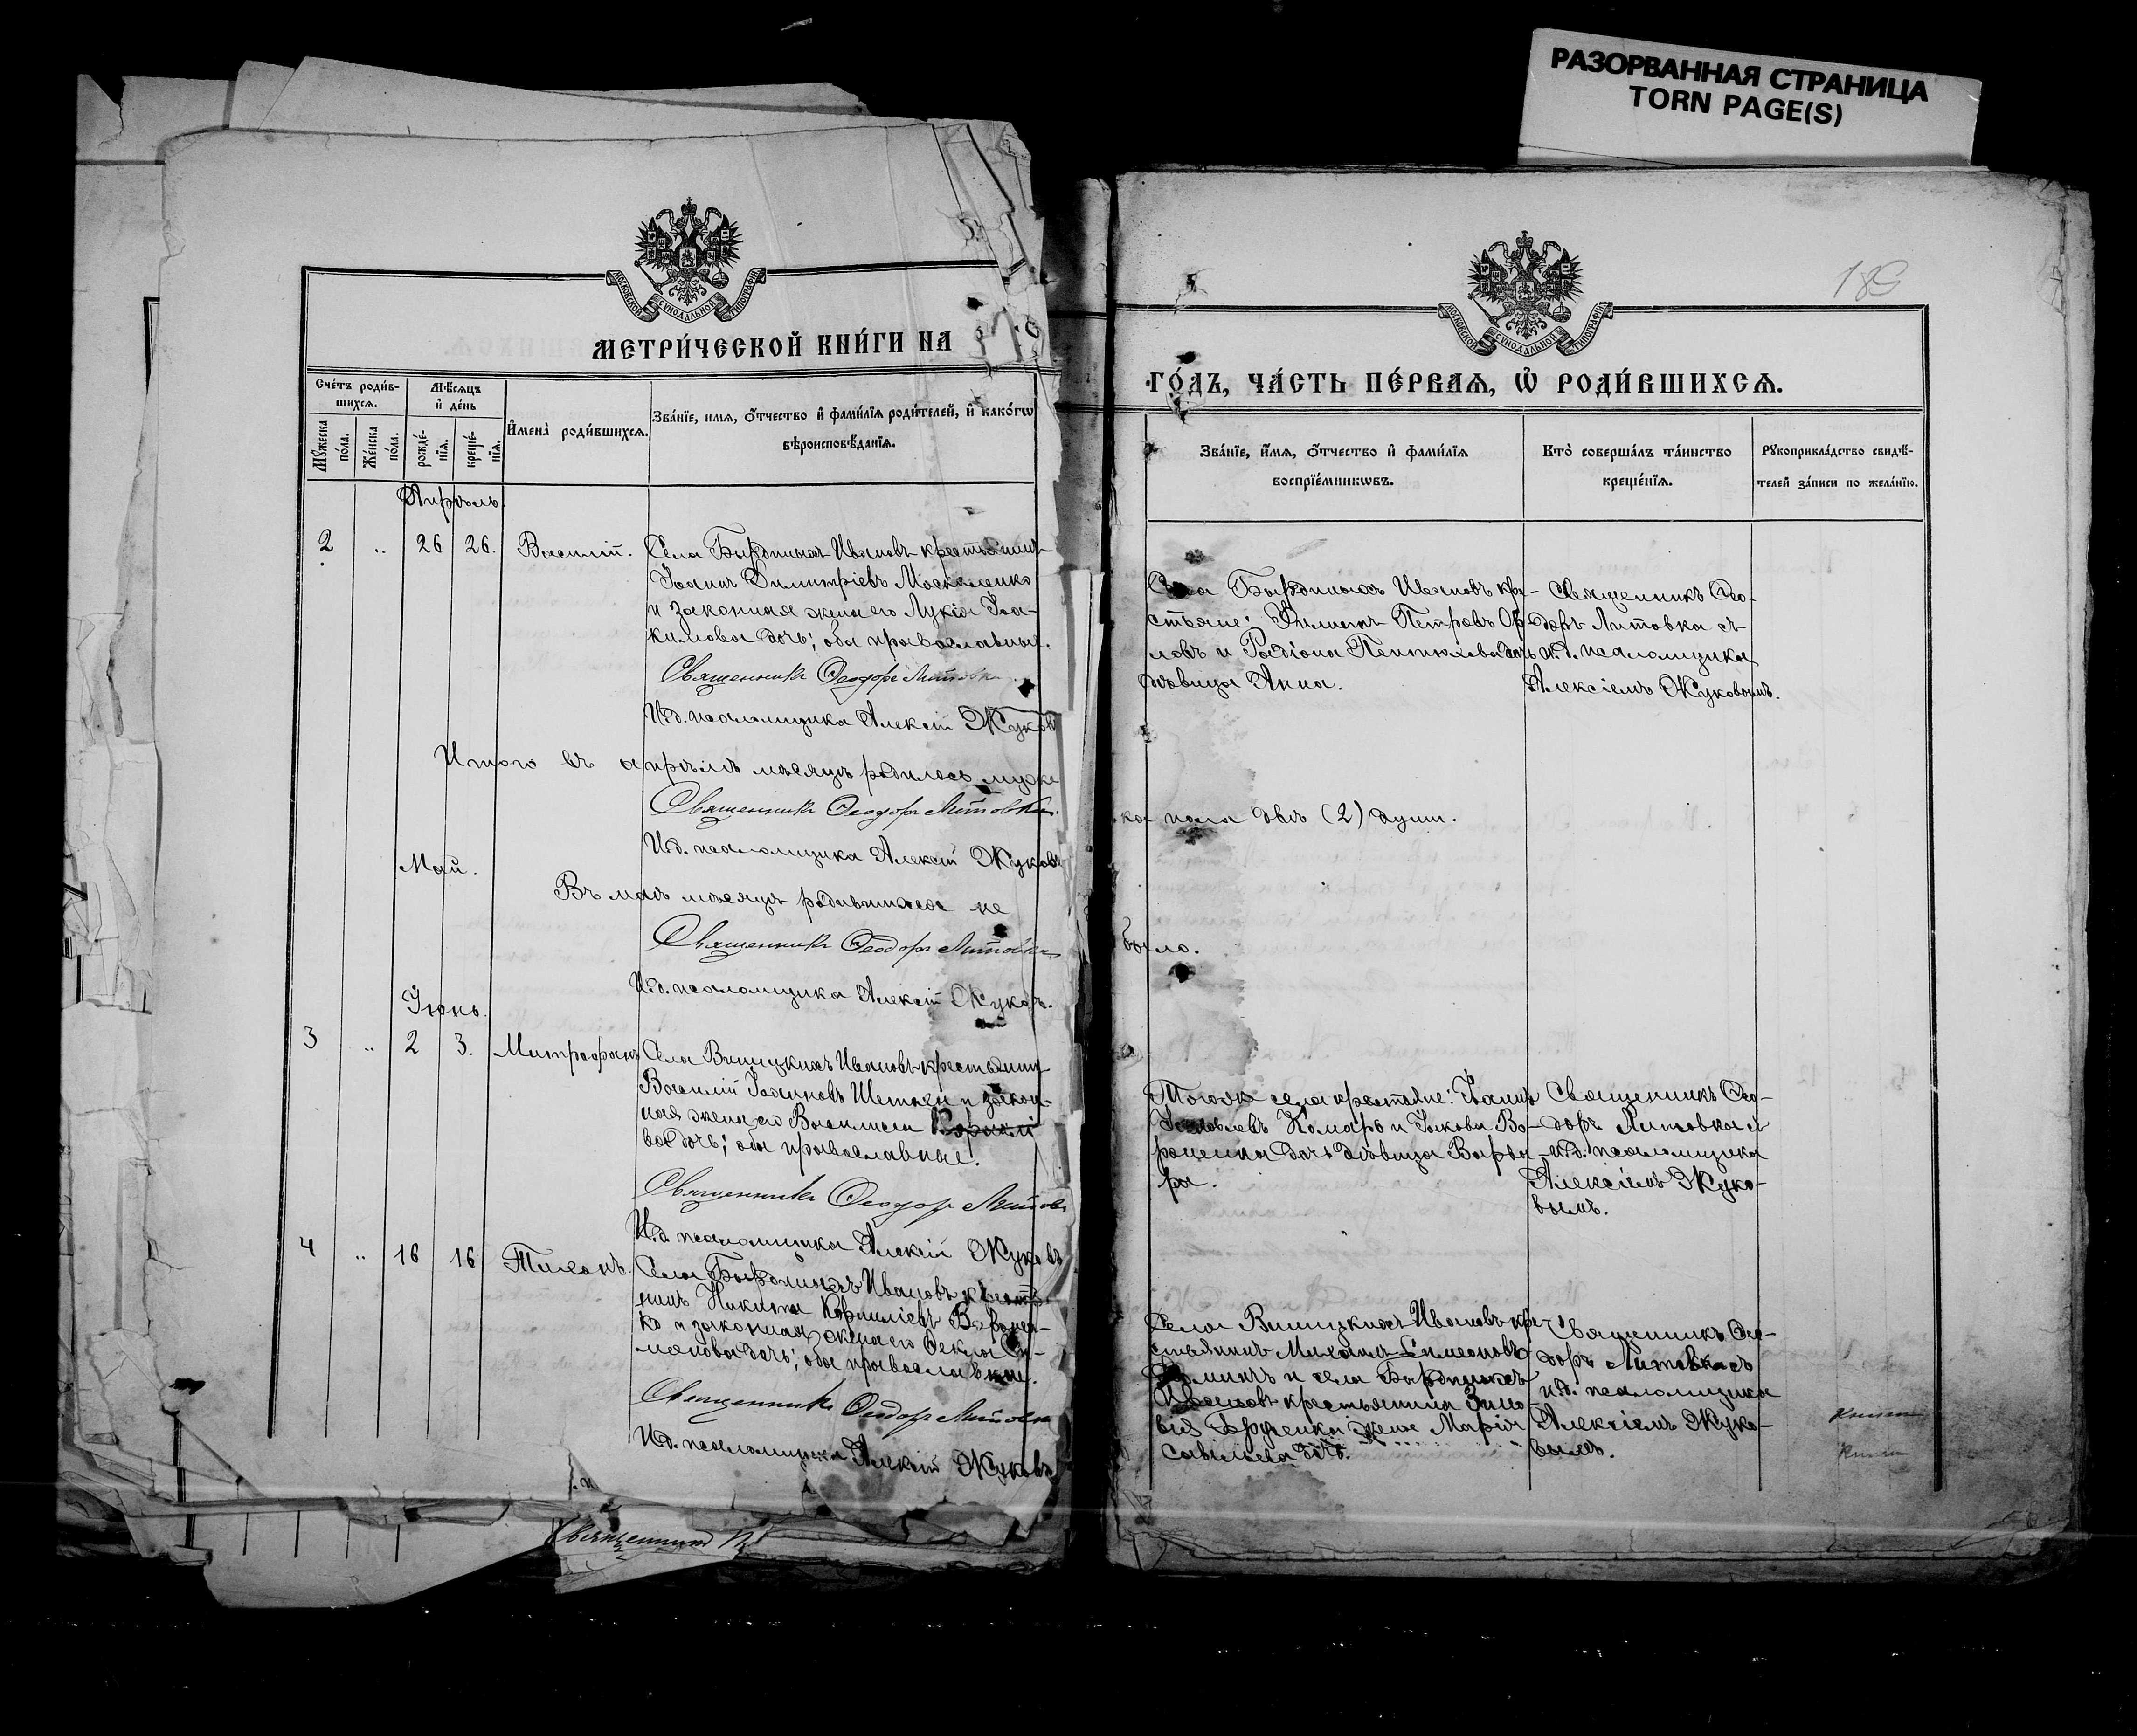 РАЗОРВАННАЯ СТРАНИЦА
TORN PAGE(S)
189
МОСКОВСКОЙ СѴНОДАЛЬНОЙ ТИПОГРАФІИ
МЕТРИ́ЧЕСКОЙ КНИ́ГИ НА
Сче́тъ роди́в-
шихсѧ.
Мѣ́сѧцъ
и҆ де́нь
Мꙋ́жеска по́ла.
Же́нска по́ла.
рожде́-
нїѧ.
креще́-
нїѧ.
И҆мена̀ роди́вшихсѧ.
Зва́нїе, и҆мѧ, ѻ҆́тчество и҆ фами́лїѧ роди́телей, и҆ како́гѡ
вѣроисповѣ́данїѧ.
Апрѣль.
2 " 26 26. Василій. Села Бырдиныхъ Ивановъ крестьянинъ
Іоаннъ Димитріевъ Москаленко
и законная жена его Лукія Іоа-
кимова дочь; оба православные.
Священникъ Ѳеодоръ Литовка
И.д. псаломщика Алексій Жуковъ
Итого въ апрѣлѣ мѣсяцѣ родилось муже
Священникъ Ѳеодоръ Литовка.
И.д. псаломщика Алексій Жуковъ
Май.
Въ маѣ мѣсяцѣ родившихся не
Священникъ Ѳеодоръ Литовка
И.д. псаломщика Алексій Жуковъ.
Іюнь.
3 " 2 3. Митрофанъ Села Виницкихъ Ивановъ крестьянинъ
Василій Іоанновъ и закон-
ная жена его Василиса
ва дочь; оба православные.
Священникъ Ѳеодоръ Литовка
И.д. псаломщика Алексій Жуковъ
4 " 16 16 Тихонъ. Села Бырдиныхъ Ивановъ крестья-
нинъ Никита Корниліевъ Воронен-
ко и законная жена его Ѳекла Си-
меонова дочь; оба православные.
Священникъ Ѳеодоръ Литовка
И.д. псаломщика Алексій Жуковъ
Священникъ
МОСКОВСКОЙ СѴНОДАЛЬНОЙ ТИПОГРАФІИ
ГО́ДЪ, ЧА́СТЬ ПЕ́РВАѦ, Ѽ РОДИ́ВШИХСѦ.
Зва́нїе, и҆́мѧ, ѻ҆́тчество и҆ фами́лїѧ
воспрїе́мникѡвъ.
Кто̀ соверша́лъ та́инство
креще́нїѧ.
Рꙋкоприкла́дство свидѣ́-
телей за́писи по жела́нїю.
Села Бырдиныхъ Ивановъ кре-
стьяне: Филиппъ Петровъ Ор-
ловъ и Родіона дочь
дѣвица Анна.
Священникъ Ѳео-
доръ Литовка съ
и.д. псаломщика
Алексіемъ Жуковымъ.
ка пола двѣ (2) души.
было.
Тогожъ села крестьяне: Іоаннъ
Комаръ и Іакова Во-
роненка дочь дѣвица Варва-
ра.
Священникъ Ѳео-
доръ Литовка съ
и.д. псаломщика
Алексіемъ Жуко-
вымъ.
Села Виницкихъ Ивановъ кре-
стьянинъ Михаилъ Симеоновъ
и села Бырдиныхъ
Ивановъ крестьянина Зино-
вія жена Марія
Савельева дочь.
Священникъ Ѳео-
доръ Литовка съ
и.д. псаломщика
Алексіемъ Жуко-
вымъ.